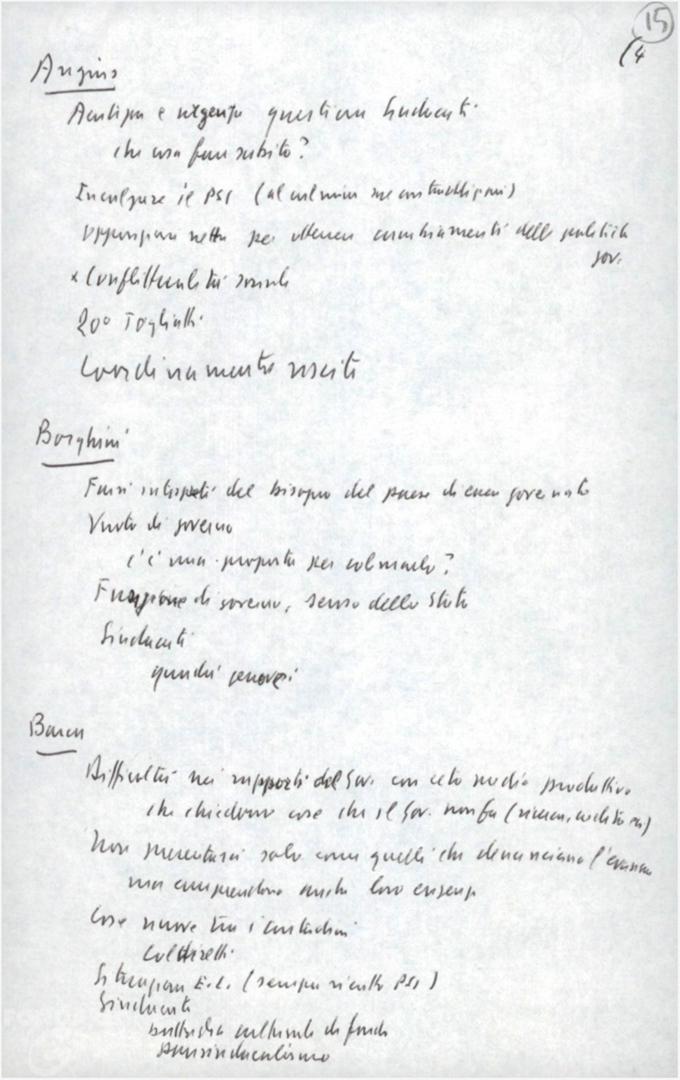 15
(4
Angius
e urgente questione Sindacati
che cosa fare subito?
Incalzare il PSI (al culmine sue contraddizioni)
Opposizione netta per ottenere cambiamenti della politica
gov.
x Conflittualità sociale
20° Togliatti
Coordinamento uscite
Borghini
Farsi interpreti del bisogno del paese di esser governato
Vuoto di governo
c'è una proposta per colmarlo?
Funzione di governo, senso dello Stato
Sindacati
quadri genovesi
Barca
Difficoltà nei rapporti del Gov. con ceto medio produttivo
che chiedono cose che il Gov. non fa (ricerca, credito ecc)
Non presentarsi solo come quelli che denunciano l'evasione
ma comprendono anche loro esigenze
Cose nuove tra i contadini
Coldiretti
Situazione E.L. (sempre ricatto PSI)
Sindacati
battaglia culturale di fondo
pansindacalismo